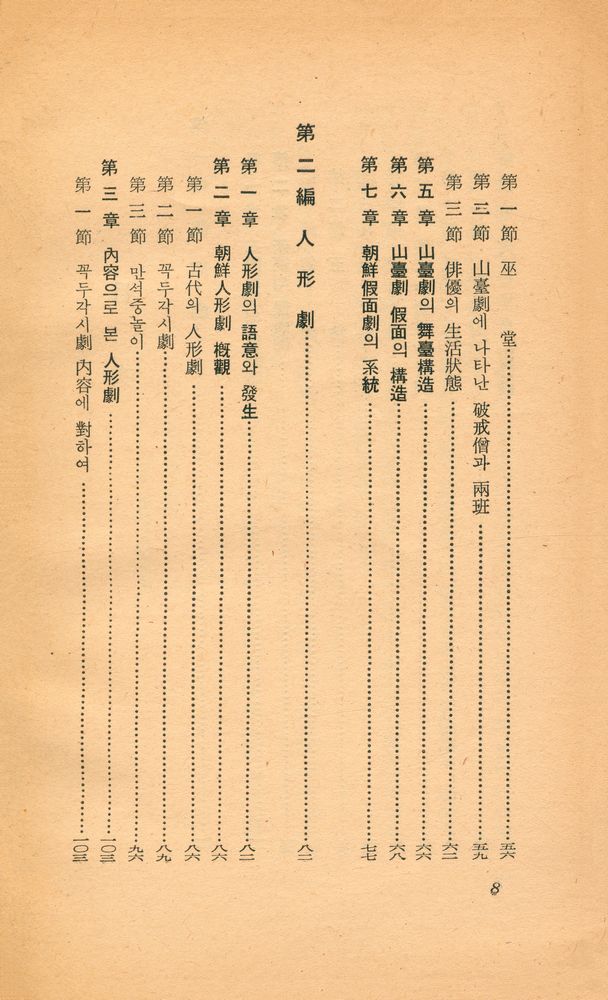 第一節 巫堂……五六
第二節 山臺劇에 나타난 破戒僧과 兩班……五九
第三節 俳優의 生活狀態……六二
第五章 山臺劇의 舞臺構造……六六
第六章 山臺劇 假面의 構造……六八
第七章 朝鮮假面劇의 系統……七七
第二編 人形劇……八二
第一章 人形劇의 語意와 發生……八二
第二章 朝鮮人形劇 槪觀……八六
第一節 古代의 人形劇……八六
第二節 꼭두각시劇……八九
第三節 만석중놀이……九六
第三章 內容으로 본 人形劇……一〇三
第一節 꼭두각시劇 內容에 對하여……一〇三
8